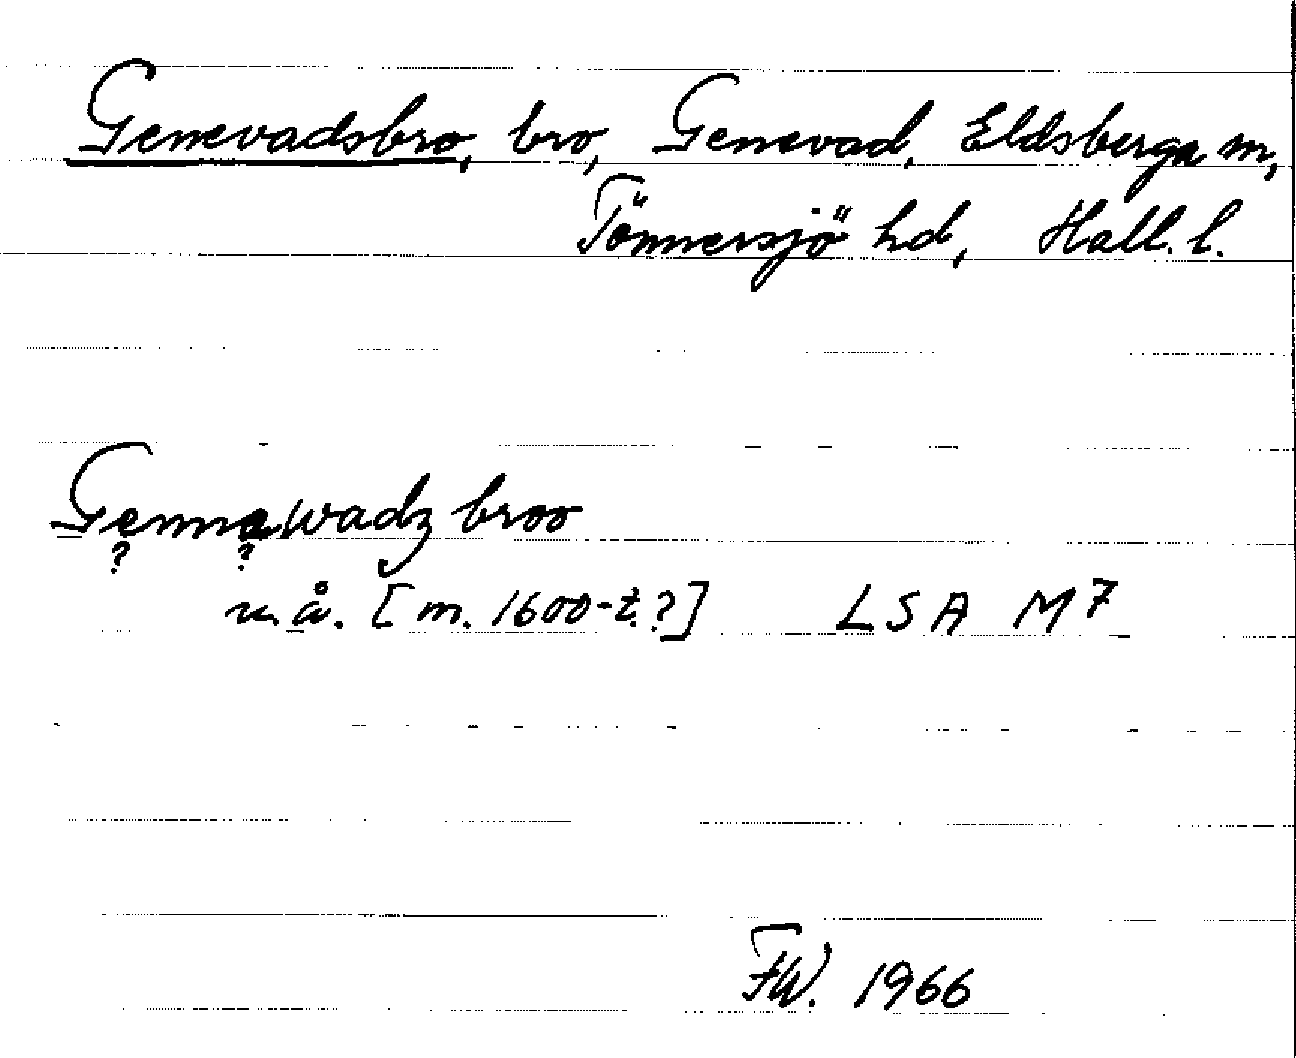 Genevadsbro, bro, Genevad, Eldsberga sn,
Tönnersjö hd, Hall. l.
Gennawadz broo
? ?
u. å. [m. 1600-t.?] LSA M7
FW. 1966